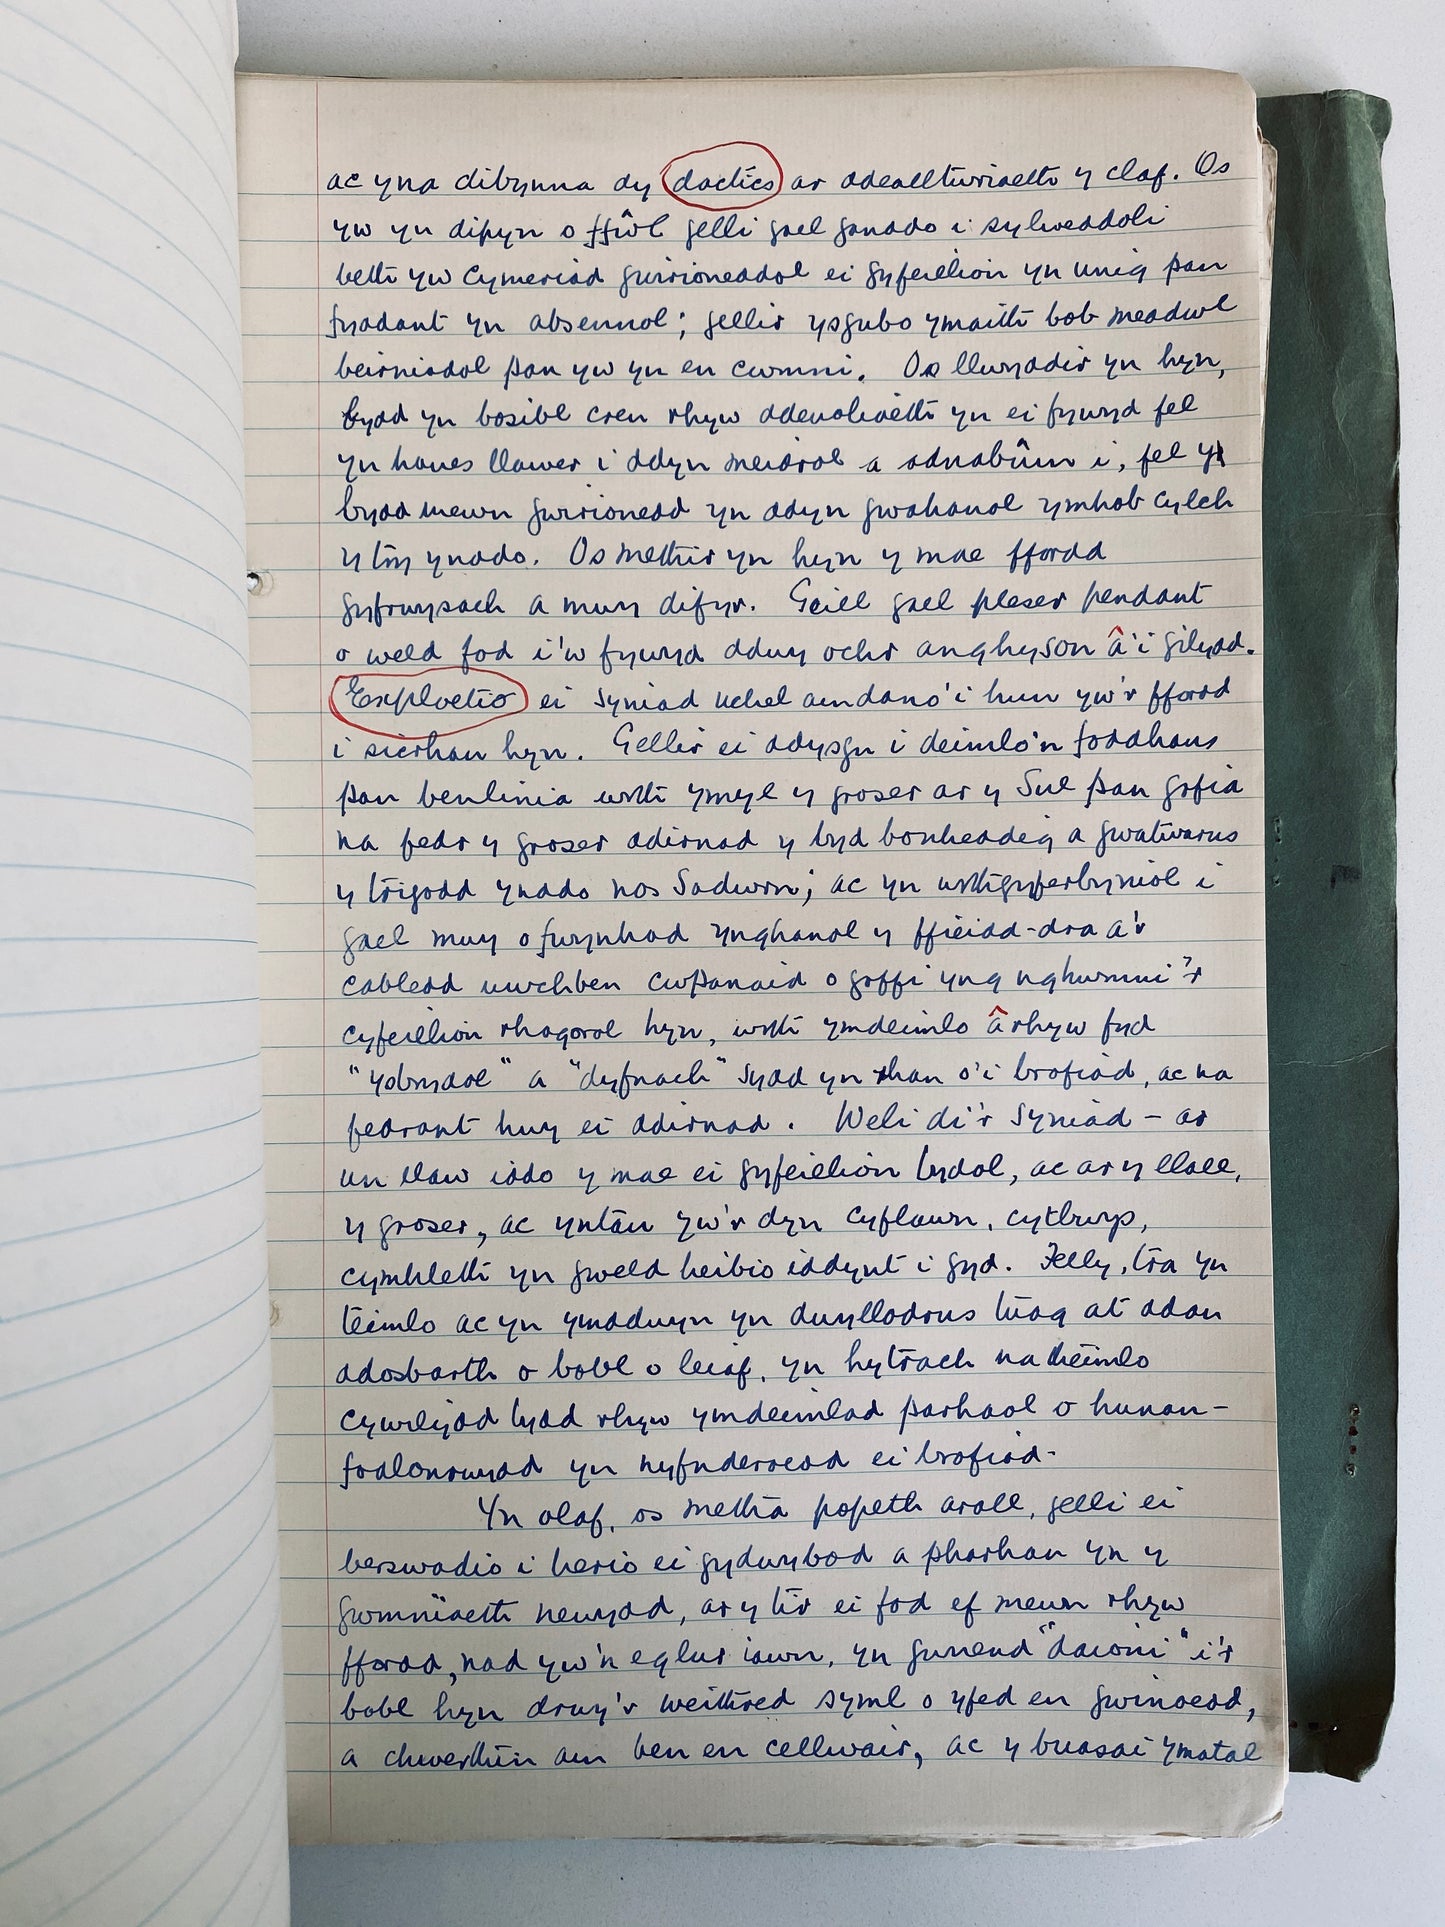 ac yna dibynna dy dactics ar ddealltwriaeth y claf. Os
yw yn dipyn o ffŵl gelli gael ganddo i sylweddoli
beth yw cymeriad gwirioneddol ei gyfeillion yn unig pan
fyddant yn absennol; gellir ysgubo ymaith bob meddwl
beirniadol pan yw yn eu cwmni. Os llwyddir yn hyn,
bydd yn bosibl creu rhyw ddeuoliaeth yn ei fywyd fel
yn hanes llawer i ddyn meidrol a adnabûm i, fel y
bydd mewn gwirionedd yn ddyn gwahanol ymhob cylch
y try ynddo. Os methir yn hyn y mae ffordd
gyfrwysach a mwy difyr. Geill gael pleser pendant
o weld fod i'w fywyd ddwy ochr anghyson â'i gilydd.
Exploetio ei syniad uchel amdano'i hun yw'r ffordd
i sicrhau hyn. Gellir ei ddysgu i deimlo'n foddhaus
pan benlinia wrth ymyl y groser ar y Sul pan gofia
na fedr y groser ddirnad y byd bonheddig a gwatwarus
y trigodd ynddo nos Sadwrn; ac yn wrthgyferbyniol i
gael mwy o fwynhad ynghanol y ffieidd-dra a'r
cabledd uwchben cwpanaid o goffi yng nghwmni'r
cyfeillion rhagorol hyn, wrth ymdeimlo â rhyw fyd
"ysbrydol" a "dyfnach" sydd yn rhan o'i brofiad, ac na
fedrant hwy ei ddirnad. Weli di'r syniad – ar
un llaw iddo y mae ei gyfeillion bydol, ac ar y llall,
y groser, ac yntau yw'r dyn cyflawn, cytbwys,
cymhleth yn gweld heibio iddynt i gyd. Felly, tra yn
teimlo ac yn ymddwyn yn dwyllodrus tuag at ddau
ddosbarth o bobl o leiaf, yn hytrach na theimlo
cywilydd bydd rhyw ymdeimlad parhaol o hunan-
foddlonrwydd yn nyfnderoedd ei brofiad.
Yn olaf, os metha popeth arall, gelli ei
berswadio i herio ei gydwybod a pharhau yn y
gwmnïaeth newydd, ar y tir ei fod ef mewn rhyw
ffordd, nad yw'n eglur iawn, yn gwneud "daioni" i'r
bobl hyn drwy'r weithred syml o yfed eu gwinoedd,
a chwerthin am ben eu cellwair, ac y buasai ymatal